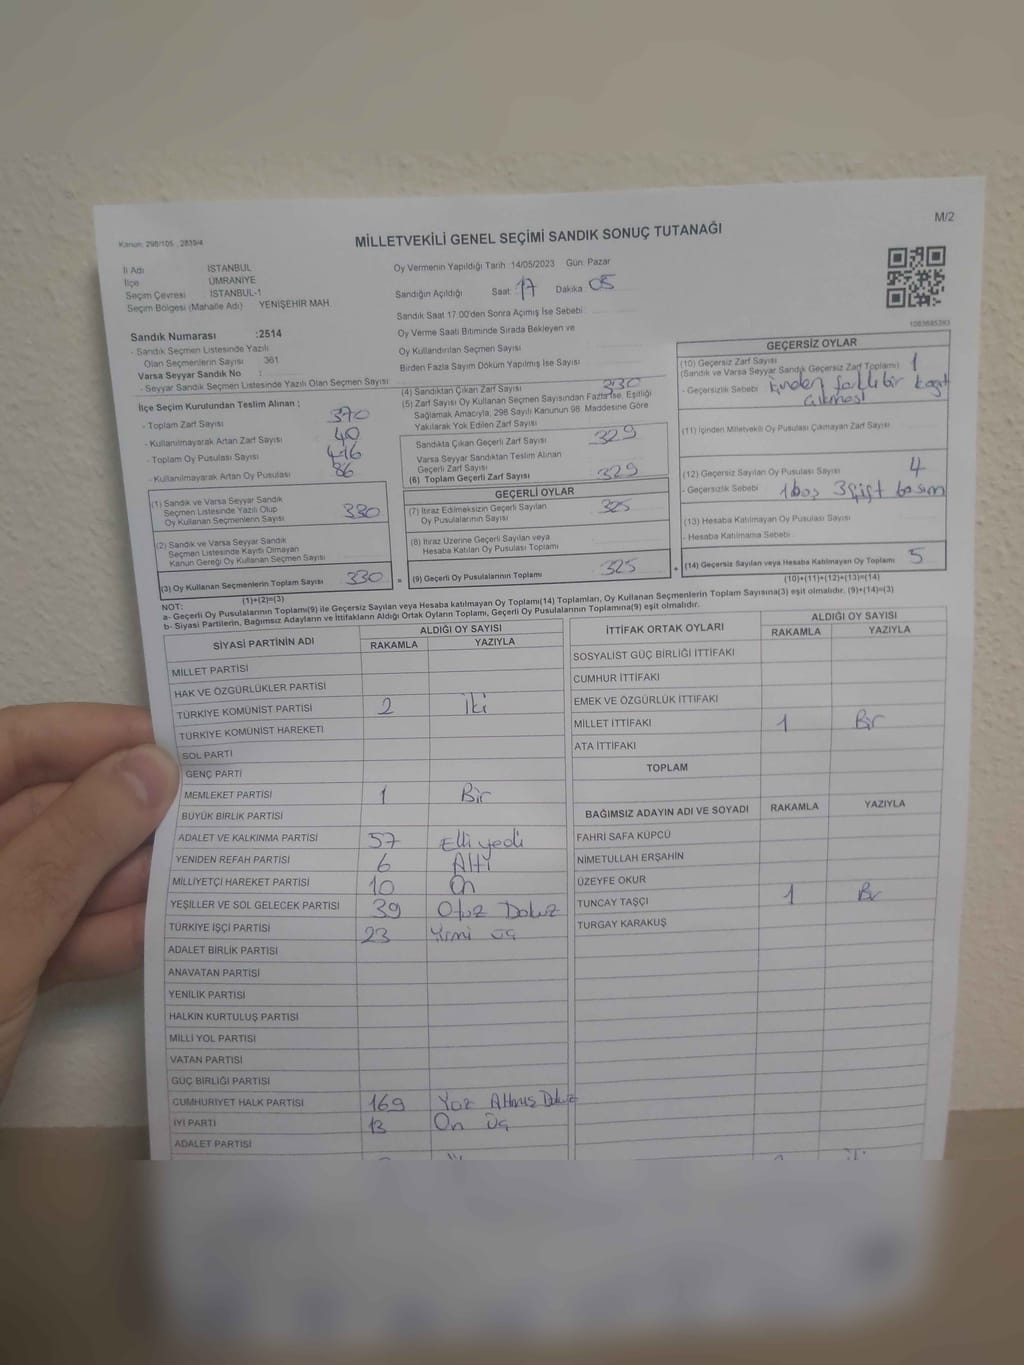 M/2
Kanun, 298/105 , 2839/4
MİLLETVEKİLİ GENEL SEÇİMİ SANDIK SONUÇ TUTANAĞI
İl Adı İSTANBUL
İlçe ÜMRANİYE
Seçim Çevresi : İSTANBUL-1
Seçim Bölgesi (Mahalle Adı) YENİŞEHİR MAH.
Oy Vermenin Yapıldığı Tarih: 14/05/2023 Gün: Pazar
Sandığın Açıldığı Saat: 17 Dakika 05
Sandık Saat 17:00'den Sonra Açılmış İse Sebebi
Oy Verme Saati Bitiminde Sırada Bekleyen ve
Oy Kullandırılan Seçmen Sayısı
Birden Fazla Sayım Döküm Yapılmış İse Sayısı
1083695393
Sandık Numarası :2514
- Sandık Seçmen Listesinde Yazılı
Olan Seçmenlerin Sayısı : 361
Varsa Seyyar Sandık No :
- Seyyar Sandık Seçmen Listesinde Yazılı Olan Seçmen Sayısı
İlçe Seçim Kurulundan Teslim Alınan ;
- Toplam Zarf Sayısı 370
- Kullanılmayarak Artan Zarf Sayısı 40
- Toplam Oy Pusulası Sayısı 416
- Kullanılmayarak Artan Oy Pusulası 86
(1) Sandık ve Varsa Seyyar Sandık
Seçmen Listesinde Yazılı Olup
Oy Kullanan Seçmenlerin Sayısı 330
(2) Sandık ve Varsa Seyyar Sandık
Seçmen Listesinde Kayıtlı Olmayan
Kanun Gereği Oy Kullanan Seçmen Sayısı
(3) Oy Kullanan Seçmenlerin Toplam Sayısı 330 =
(1)+(2)=(3)
(4) Sandıktan Çıkan Zarf Sayısı 330
(5) Zarf Sayısı Oy Kullanan Seçmen Sayısından Fazla İse, Eşitliği
Sağlamak Amacıyla, 298 Sayılı Kanunun 98. Maddesine Göre
Yakılarak Yok Edilen Zarf Sayısı
Sandıkta Çıkan Geçerli Zarf Sayısı 329
Varsa Seyyar Sandıktan Teslim Alınan
Geçerli Zarf Sayısı
(6) Toplam Geçerli Zarf Sayısı 329
GEÇERLİ OYLAR
(7) İtiraz Edilmeksizin Geçerli Sayılan
Oy Pusulalarının Sayısı 325
(8) İtiraz Üzerine Geçerli Sayılan veya
Hesaba Katılan Oy Pusulası Toplamı
(9) Geçerli Oy Pusulalarının Toplamı 325 +
GEÇERSİZ OYLAR
(10) Geçersiz Zarf Sayısı
(Sandık ve Varsa Seyyar Sandık Geçersiz Zarf Toplamı) 1
- Geçersizlik Sebebi İçinden farklı bir kağıt
çıkması
(11) İçinden Milletvekili Oy Pusulası Çıkmayan Zarf Sayısı
(12) Geçersiz Sayılan Oy Pusulası Sayısı 4
- Geçersizlik Sebebi 1 boş 3 çift basım
(13) Hesaba Katılmayan Oy Pusulası Sayısı
- Hesaba Katılmama Sebebi
(14) Geçersiz Sayılan veya Hesaba Katılmayan Oy Toplamı 5
(10)+(11)+(12)+(13)=(14)
NOT:
a- Geçerli Oy Pusulalarının Toplamı(9) ile Geçersiz Sayılan veya Hesaba katılmayan Oy Toplamı(14) Toplamları, Oy Kullanan Seçmenlerin Toplam Sayısına(3) eşit olmalıdır. (9)+(14)=(3)
b- Siyasi Partilerin, Bağımsız Adayların ve İttifakların Aldığı Ortak Oyların Toplamı, Geçerli Oy Pusulalarının Toplamına(9) eşit olmalıdır.
SİYASİ PARTİNİN ADI ALDIĞI OY SAYISI
RAKAMLA YAZIYLA
MİLLET PARTİSİ
HAK VE ÖZGÜRLÜKLER PARTİSİ
TÜRKİYE KOMÜNİST PARTİSİ 2 İki
TÜRKİYE KOMÜNİST HAREKETİ
SOL PARTİ
GENÇ PARTİ
MEMLEKET PARTİSİ 1 Bir
BÜYÜK BİRLİK PARTİSİ
ADALET VE KALKINMA PARTİSİ 57 Elli yedi
YENİDEN REFAH PARTİSİ 6 Altı
MİLLİYETÇİ HAREKET PARTİSİ 10 On
YEŞİLLER VE SOL GELECEK PARTİSİ 39 Otuz Dokuz
TÜRKİYE İŞÇİ PARTİSİ 23 Yirmi üç
ADALET BİRLİK PARTİSİ
ANAVATAN PARTİSİ
YENİLİK PARTİSİ
HALKIN KURTULUŞ PARTİSİ
MİLLİ YOL PARTİSİ
VATAN PARTİSİ
GÜÇ BİRLİĞİ PARTİSİ
CUMHURİYET HALK PARTİSİ 169 Yüz Altmış Dokuz
İYİ PARTİ 13 On üç
ADALET PARTİSİ
İTTİFAK ORTAK OYLARI ALDIĞI OY SAYISI
RAKAMLA YAZIYLA
SOSYALİST GÜÇ BİRLİĞİ İTTİFAKI
CUMHUR İTTİFAKI
EMEK VE ÖZGÜRLÜK İTTİFAKI
MİLLET İTTİFAKI 1 Bir
ATA İTTİFAKI
TOPLAM
BAĞIMSIZ ADAYIN ADI VE SOYADI RAKAMLA YAZIYLA
FAHRİ SAFA KÜPCÜ
NİMETULLAH ERŞAHİN
ÜZEYFE OKUR
TUNCAY TAŞÇI 1 Bir
TURGAY KARAKUŞ